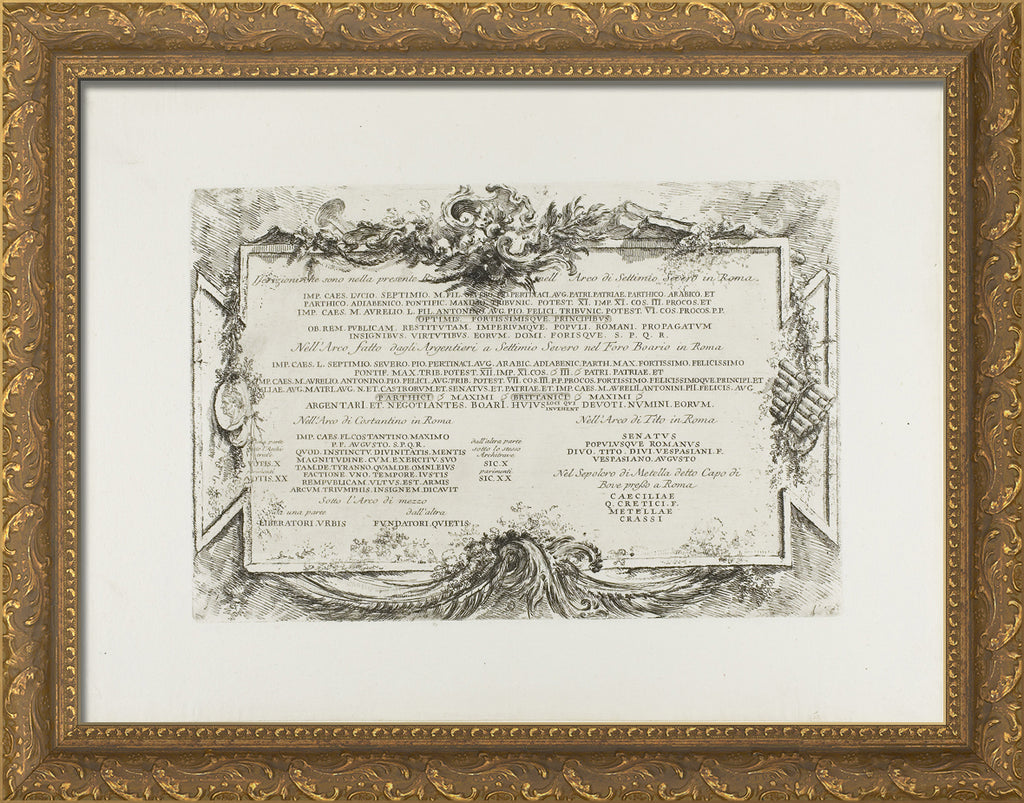 Iscrizioni che sono nella presente nell' Arco di Settimio Severo in Roma
IMP. CAES. LVCIO. SEPTIMIO. M. FIL. SEVERO. PIO. PERTINACI. AVG. PATRI. PATRIAE. PARTHICO. ARABICO. ET
PARTHICO. ADIABENICO. PONTIFIC. MAXIMO. TRIBVNIC. POTEST. XI. IMP. XI. COS. III. PROCOS. ET
IMP. CAES. M. AVRELIO. L. FIL. ANTONINO. AVG. PIO. FELICI. TRIBVNIC. POTEST. VI. COS. PROCOS. P.P.
OPTIMIS. FORTISSIMISQVE. PRINCIPIBVS
OB. REM. PVBLICAM. RESTITVTAM. IMPERIVMQVE. POPVLI. ROMANI. PROPAGATVM
INSIGNIBVS. VIRTVTIBVS. EORVM. DOMI. FORISQVE. S. P. Q. R.
Nell'Arco fatto dagli Argentieri a Settimio Severo nel Foro Boario in Roma
IMP. CAES. L. SEPTIMIO. SEVERO. PIO. PERTINACI. AVG. ARABIC. ADIABENIC. PARTH. MAX. FORTISSIMO. FELICISSIMO
PONTIF. MAX. TRIB. POTEST. XII. IMP. XI. COS. III. PATRI. PATRIAE. ET
IMP. CAES. M. AVRELIO. ANTONINO. PIO. FELICI. AVG. TRIB. POTEST. VII. COS. III. P.P. PROCOS. FORTISSIMO. FELICISSIMOQVE. PRINCIPI. ET
IVLIAE. AVG. MATRI. AVG. N. ET. CASTRORVM. ET. SENATVS. ET. PATRIAE. ET. IMP. CAES. M. AVRELII. ANTONINI. PII. FELICIS. AVG
PARTHICI MAXIMI BRITTANICI MAXIMI
ARGENTARI. ET. NEGOTIANTES. BOARI. HVIVS LOCI QVI INVEHENT DEVOTI. NVMINI. EORVM.
Nell'Arco di Costantino in Roma
IMP. CAES. FL. COSTANTINO. MAXIMO
P. F. AVGVSTO. S.P.Q.R.
QVOD. INSTINCTV. DIVINITATIS. MENTIS
MAGNITVDINE. CVM. EXERCITV. SVO
TAM. DE. TYRANNO. QVAM. DE. OMNI. EIVS
FACTIONE. VNO. TEMPORE. IVSTIS
REMPVBLICAM. VLTVS. EST. ARMIS
ARCVM. TRIVMPHIS. INSIGNEM. DICAVIT
parte
VOTIS. X
VOTIS. XX
dall'altra parte
sotto lo stesso
Architrave
SIC. X
parimenti
SIC. XX
Sotto l'Arco di mezzo
da una parte dall'altra
LIBERATORI. VRBIS FVNDATORI. QVIETIS
Nell'Arco di Tito in Roma
SENATVS
POPVLVSQVE ROMANVS
DIVO. TITO. DIVI. VESPASIANI. F.
VESPASIANO. AVGVSTO
Nel Sepolcro di Metella detto Capo di
Bove presso a Roma
CAECILIAE
Q. CRETICI. F.
METELLAE
CRASSI